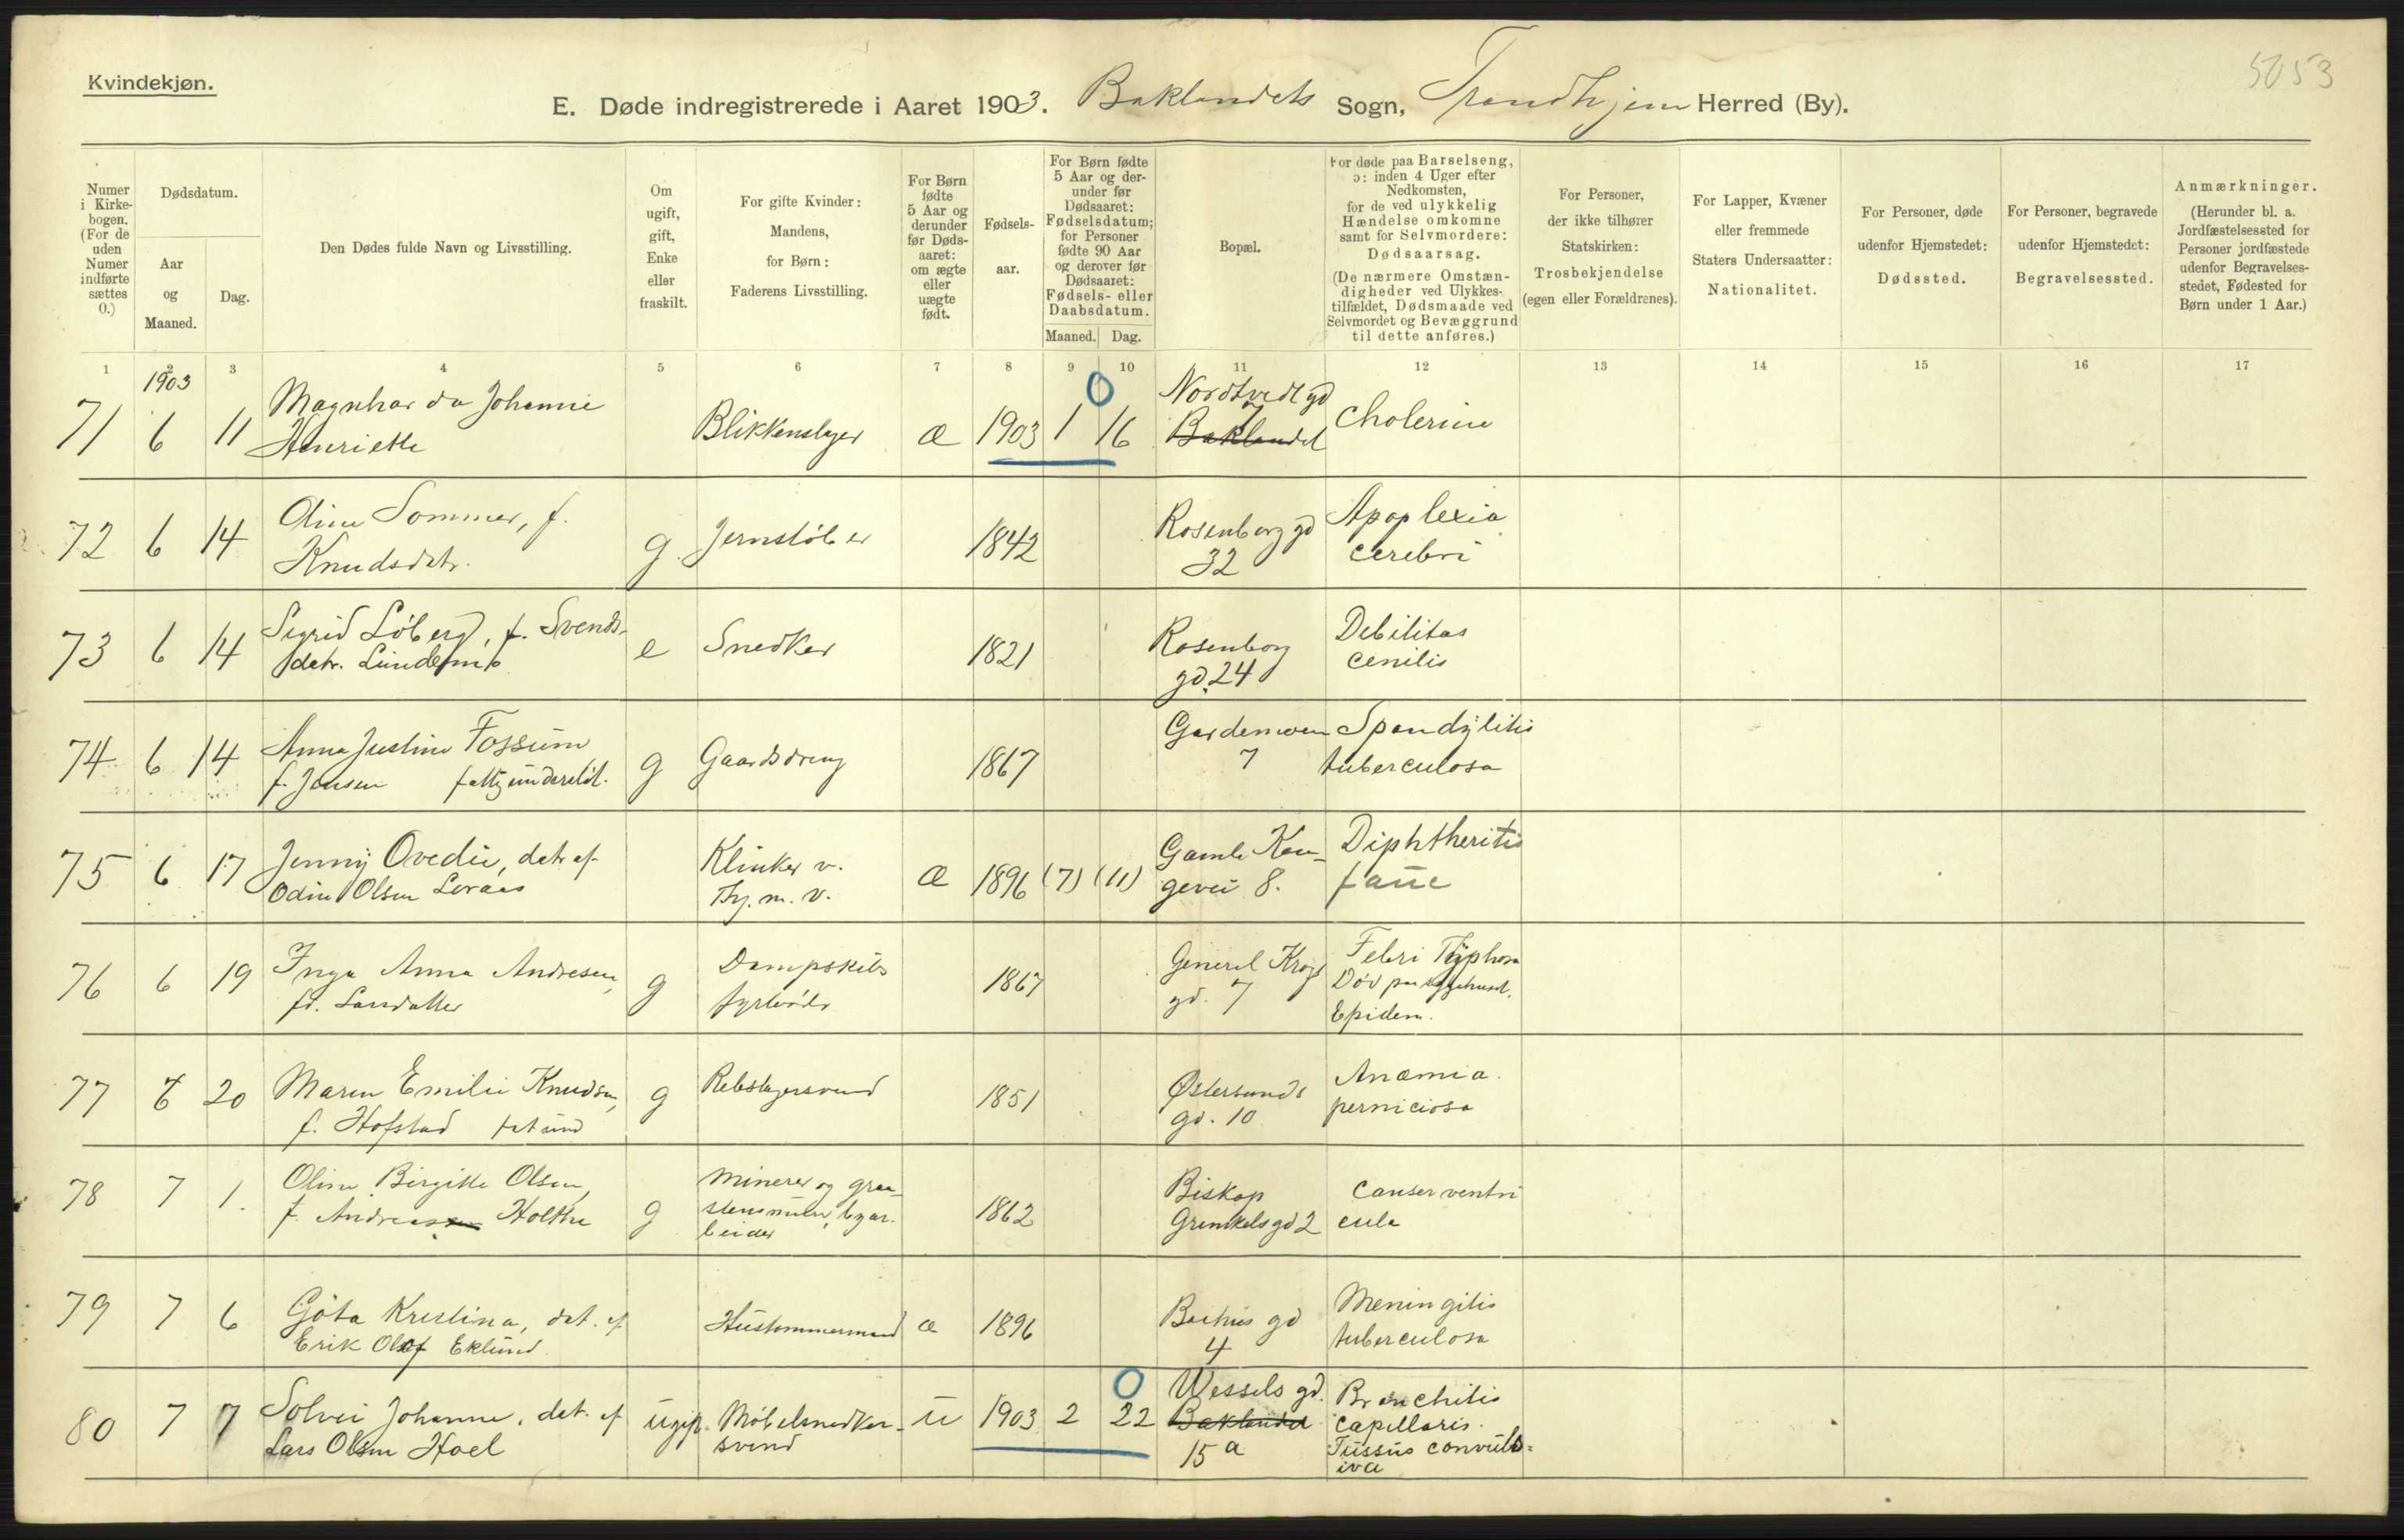 Kvindekjøn.
5053
E. Døde indregistrerede i Aaret 1903. Baklandets Sogn, Trondhjem Herred (By).
Numer i Kirkebogen. (For de uden Numer indførte sættes 0.)
Dødsdatum.
Aar og Maaned.
Dag.
Den Dødes fulde Navn og Livsstilling.
Om ugift, gift, Enke eller fraskilt.
For gifte Kvinder: Mandens, for Børn: Faderens Livsstilling.
For Børn fødte 5 Aar og derunder før Dødsaaret: om ægte eller uægte født.
Fødselsaar.
For Børn fødte 5 Aar og derunder før Dødsaaret: Fødselsdatum; for Personer fødte 90 Aar og derover før Dødsaaret: Fødsels- eller Daabsdatum.
Maaned. Dag.
Bopæl.
For døde paa Barselseng, ɔ: inden 4 Uger efter Nedkomsten, for de ved ulykkelig Hændelse omkomne samt for Selvmordere: Dødsaarsag. (De nærmere Omstændigheder ved Ulykkestilfældet, Dødsmaade ved Selvmordet og Bevæggrund til dette anføres.)
For Personer, der ikke tilhører Statskirken: Trosbekjendelse (egen eller Forældrenes).
For Lapper, Kvæner eller fremmede Staters Undersaatter: Nationalitet.
For Personer, døde udenfor Hjemstedet: Dødssted.
For Personer, begravede udenfor Hjemstedet: Begravelsessted.
Anmærkninger. (Herunder bl. a. Jordfæstelsessted for Personer jordfæstede udenfor Begravelsesstedet, Fødested for Børn under 1 Aar.)
1 2 3 4 5 6 7 8 9 10 11 12 13 14 15 16 17
1903
71 6 11 Magnharda Johanne Henriette Blikkenslager æ 1903 1 16 0 Nordtvedt gd 7 Baklandet Cholerine
72 6 14 Oline Sommer, f. Knudsdatr. g Jernstøber 1842 Rosenborg gd 32 Apoplexia cerebri
73 6 14 Sigrid Løberg, f. Svendsdatr. e Snedker 1821 Rosenborg gd. 24 Debilitas cenilis
74 6 14 Anna Justine Fossum f. Jensen fattigunderstøt. g Gaardsdreng 1867 Gardemoen 7 Spondylitis tuberculosa
75 6 17 Jenny Ovedie, datr af Odin Olsen Loraas Klinker v. Tr. m. v. æ 1896 (7) (11) Gamle Kongevei 8. Diphtheritis fauc
76 6 19 Inga Anna Andresen, fd. g Dampskibs fyrbøder 1867 General Krogs gd. 7 Febri Typhosa Død paa sygehuset. Epidem.
77 6 20 Maren Emilie Knudsen, f. Hofstad fat und g Rebslagersvend 1851 Østersunds gd. 10 Anæmia perniciosa
78 7 1. Oline Birgitte Olsen, f. Andreassen Holthe g Minerer og graastensmurer, byarbeider 1862 Biskop Grimkels gd 2 Canser ventricula
79 7 6 Göta Kristina, dat. af Erik Olof Eklund Hustømmermand æ 1896 Bachus gd 4 Meningitis tuberculosa
80 7 7 Solvei Johanne, dat. af Lars Olsen Hoel ugift. Møbelsnedkersvend u 1903 2 22 0 Wessels gd. Baklandet 15 a Bronchitis capillaris. Tussus convulsiva